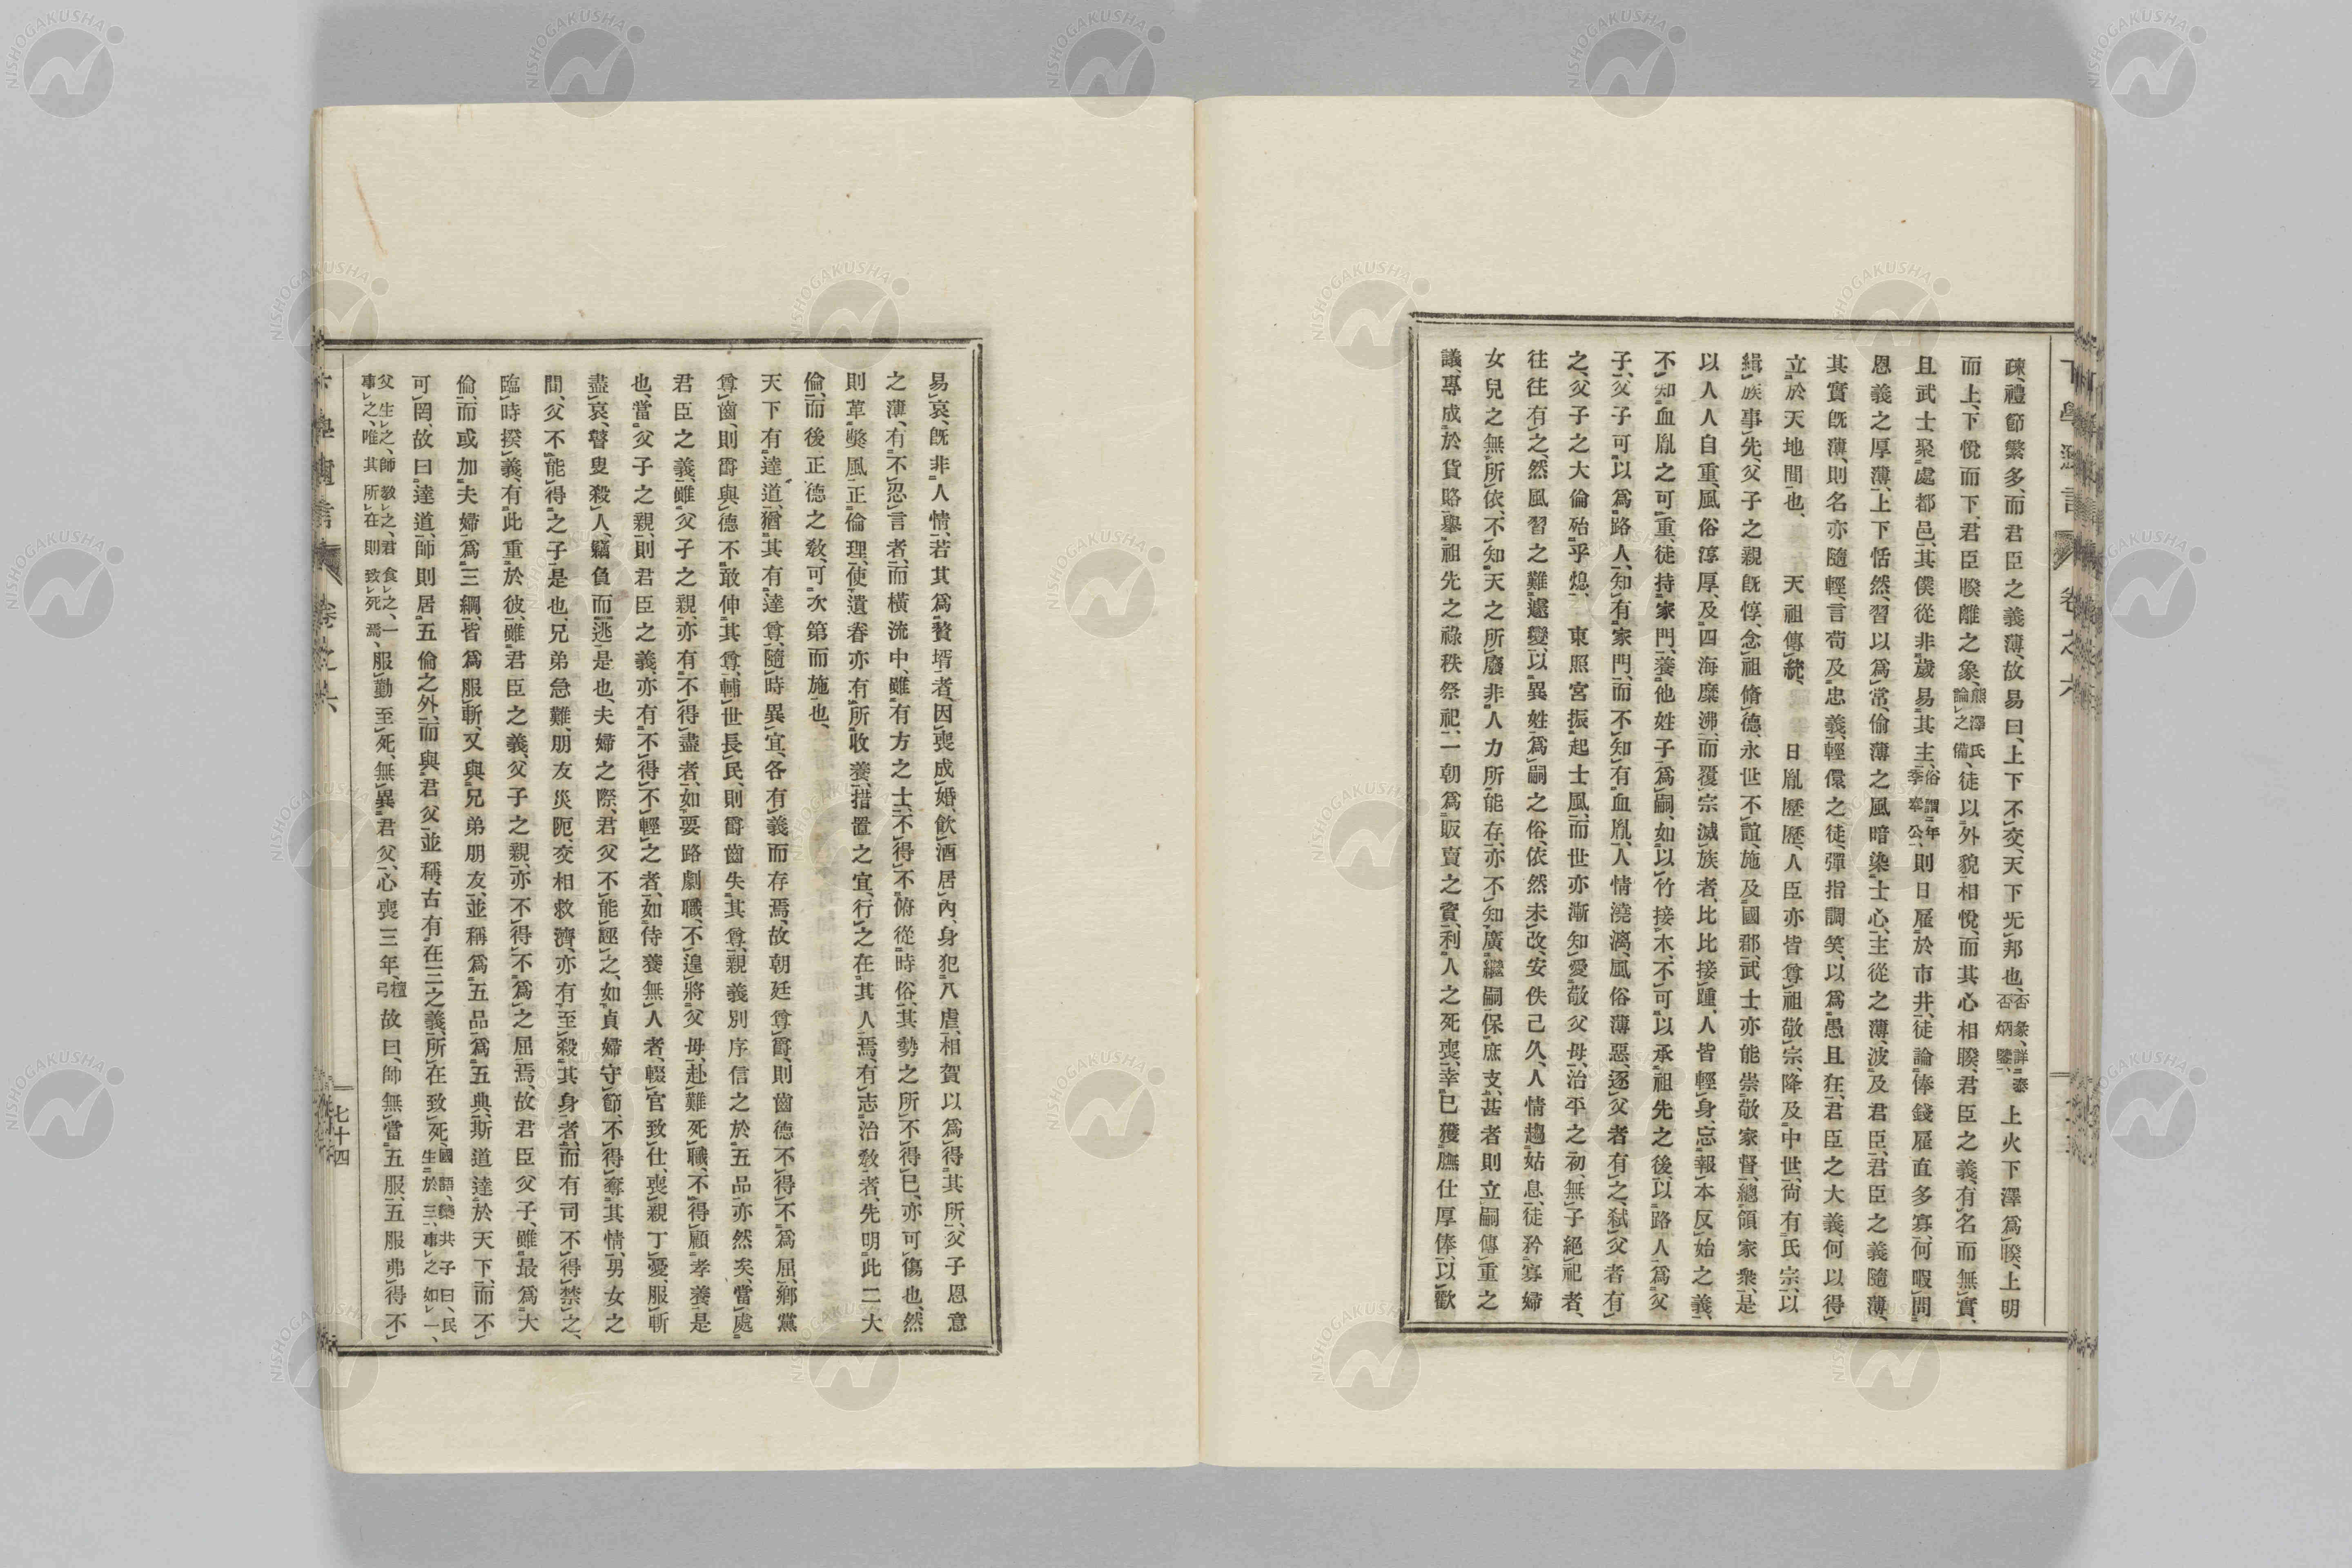 疎、禮節繁多、而君臣之義薄、故易曰、上下不交、天下旡邦也、否彖、詳泰否炳鑒、上火下澤爲睽、上明
而上、下悅而下、君臣睽離之象、熊澤氏論之備、徒以外貌相悅、而其心相睽、君臣之義、有名而無實、
且武士聚處都邑、其僕從非歲易其主、俗謂年季奉公、則日雇於市井、徒論俸錢雇直多寡、何暇問
恩義之厚薄、上下恬然、習以爲常、偷薄之風暗染士心、主從之薄、波及君臣、君臣之義隨薄、
其實既薄、則名亦隨輕、言苟及忠義、輕儇之徒、彈指調笑、以爲愚且狂、君臣之大義、何以得
立於天地間也、天祖傳統、日胤歷歷、人臣亦皆尊祖敬宗、降及中世、尙有氏宗、以
緝族事先、父子之親既惇、念祖脩德、永世不諠、施及國郡、武士亦能崇敬家督、總領家衆、是
以人人自重、風俗淳厚、及四海糜沸、而覆宗滅族者、比比接踵、人皆輕身、忘報本反始之義、
不知血胤之可重、徒持家門、養他姓子爲嗣、如以竹接木、不可以承祖先之後、以路人爲父
子、父子可以爲路人、知有家門、而不知有血胤、人情澆漓、風俗薄惡、逐父者有之、弑父者有
之、父子之大倫殆乎熄、東照宮振起士風、而世亦漸知愛敬父母、治平之初、無子絕祀者、
往往有之、然風習之難遽變、以異姓爲嗣之俗、依然未改、安佚已久、人情趨姑息、徒矜寡婦
女兒之無所依、不知天之所廢非人力所能存、亦不知廣繼嗣保庶支、甚者則立嗣傳重之
議、專成於貨賂、舉祖先之祿秩祭祀、一朝爲販賣之資、利人之死喪、幸已獲膴仕厚俸、以歡
易哀、既非人情、若其爲贅壻者、因喪成婚、飮酒居內、身犯八虐、相賀以爲得其所、父子恩意
之薄、有不忍言者、而橫流中、雖有方之士、不得不俯從時俗、其勢之所不得已、亦可傷也、然
則革獘風正倫理、使遺舂亦有所收養、措置之宜、行之在其人焉、有志治教者、先明此二大
倫、而後正德之敎、可次第而施也、
天下有達道、猶其有達尊、隨時異宜、各有義而存焉、故朝廷尊爵、則齒德不得不爲屈、鄕黨
尊齒、則爵與德不敢伸其尊、輔世長民、則爵齒失其尊、親義別序信之於五品亦然矣、當處
君臣之義、雖父子之親、亦有不得盡者、如要路劇職、不遑將父母、赴難死職、不得顧孝養是
也、當父子之親、則君臣之義、亦有不得不輕之者、如侍養無人者、輟官致仕、喪親丁憂、服斬
盡哀、瞽叟殺人、竊負而逃是也、夫婦之際、君父不能誣之、如貞婦守節、不得奪其情、男女之
間、父不能得之子是也、兄弟急難、朋友災阨、交相救濟、亦有至殺其身者、而有司不得禁之、
臨時揆義、有此重於彼、雖君臣之義、父子之親、亦不得不爲之屈焉、故君臣父子、雖最爲大
倫、而或加夫婦爲三綱、皆爲服斬、又與兄弟朋友、並稱爲五品爲五典、斯道達於天下、而不
可罔、故曰達道、師則居五倫之外、而與君父並稱、古有在三之義、所在致死、國語、欒共子曰、民生於三、事之如一、
父生之、師教之、君食之、一事之、唯其所在則致死焉、服勤至死、無異君父、心喪三年、檀弓故曰、師無當五服、五服弗得不
七十四